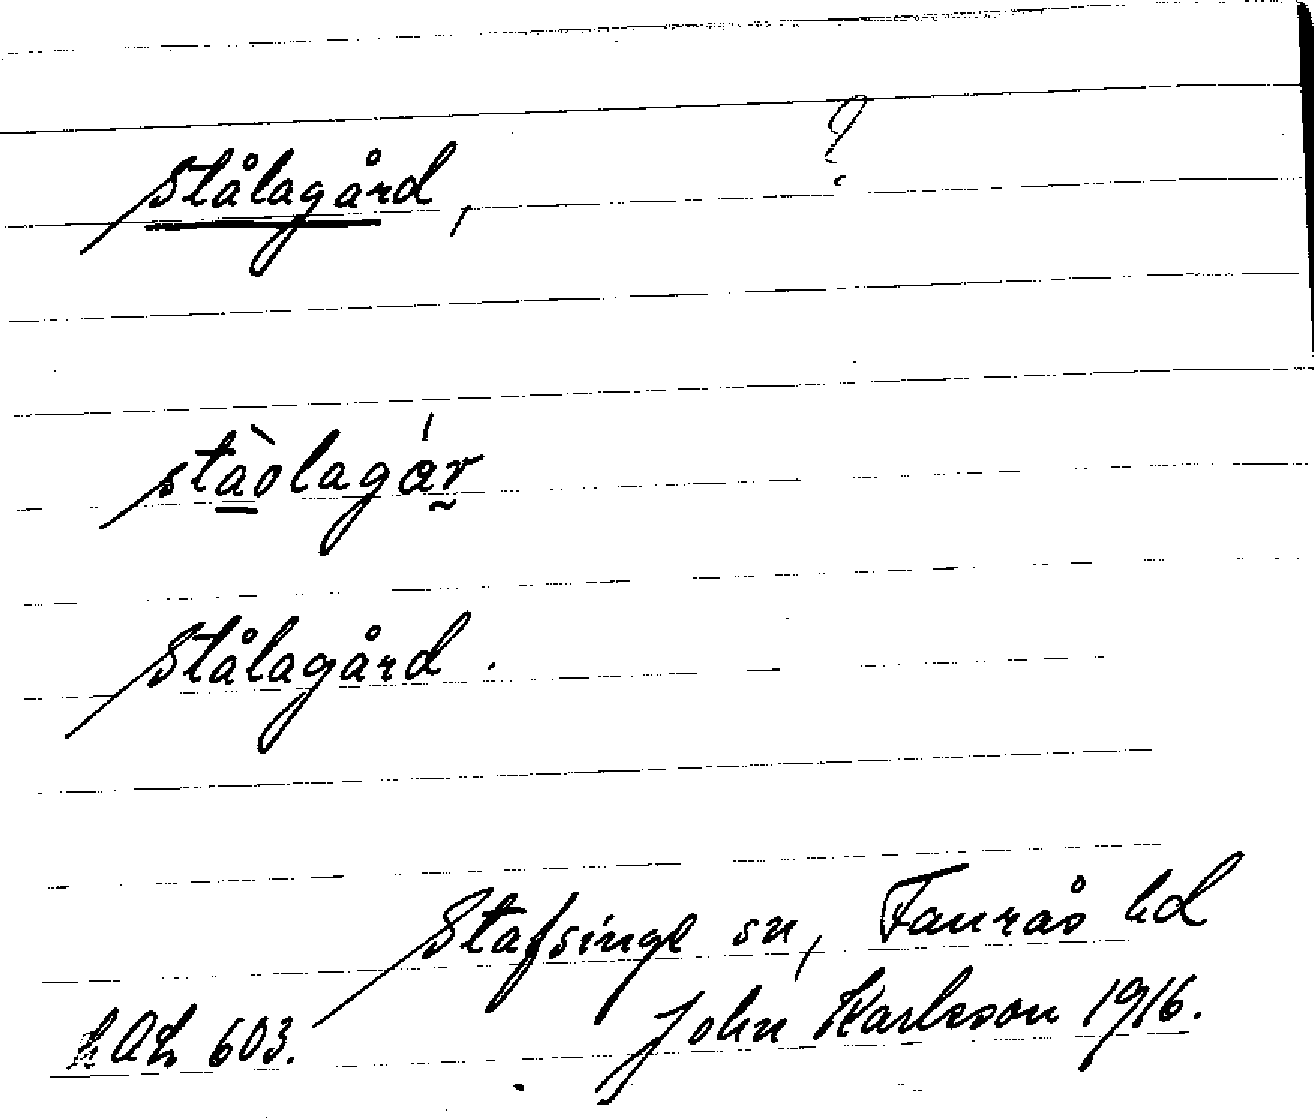 Stålagård, ?
stàolagár
Stålagård.
Stafsinge sn, Faurås hd
John Karlsson 1916.
603.